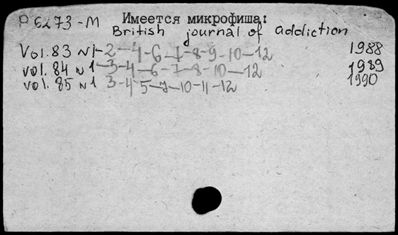 P 6273-M Имеется микрофиша:
British journal of addiction
Vol. 83 N1-2-4-6-7-8-9-10-12 1988
vol. 84 N1-3-4-6-7-8-10-12 1989
vol. 85 N1 3-4-5-7-10-11-12 1990